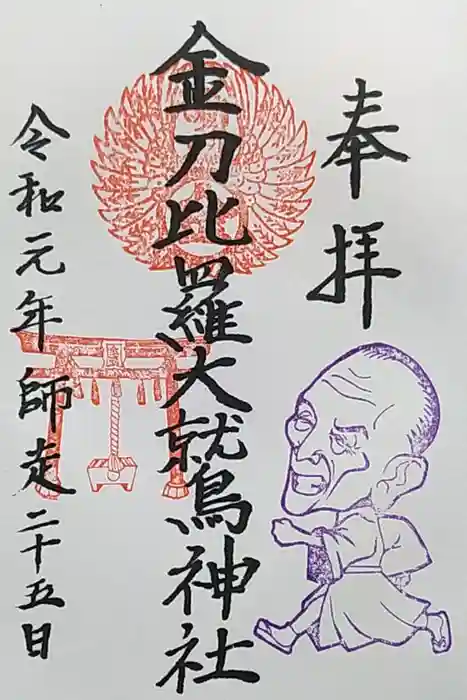 奉拝
金刀比羅大就鳥神社
令和元年師走二十五日